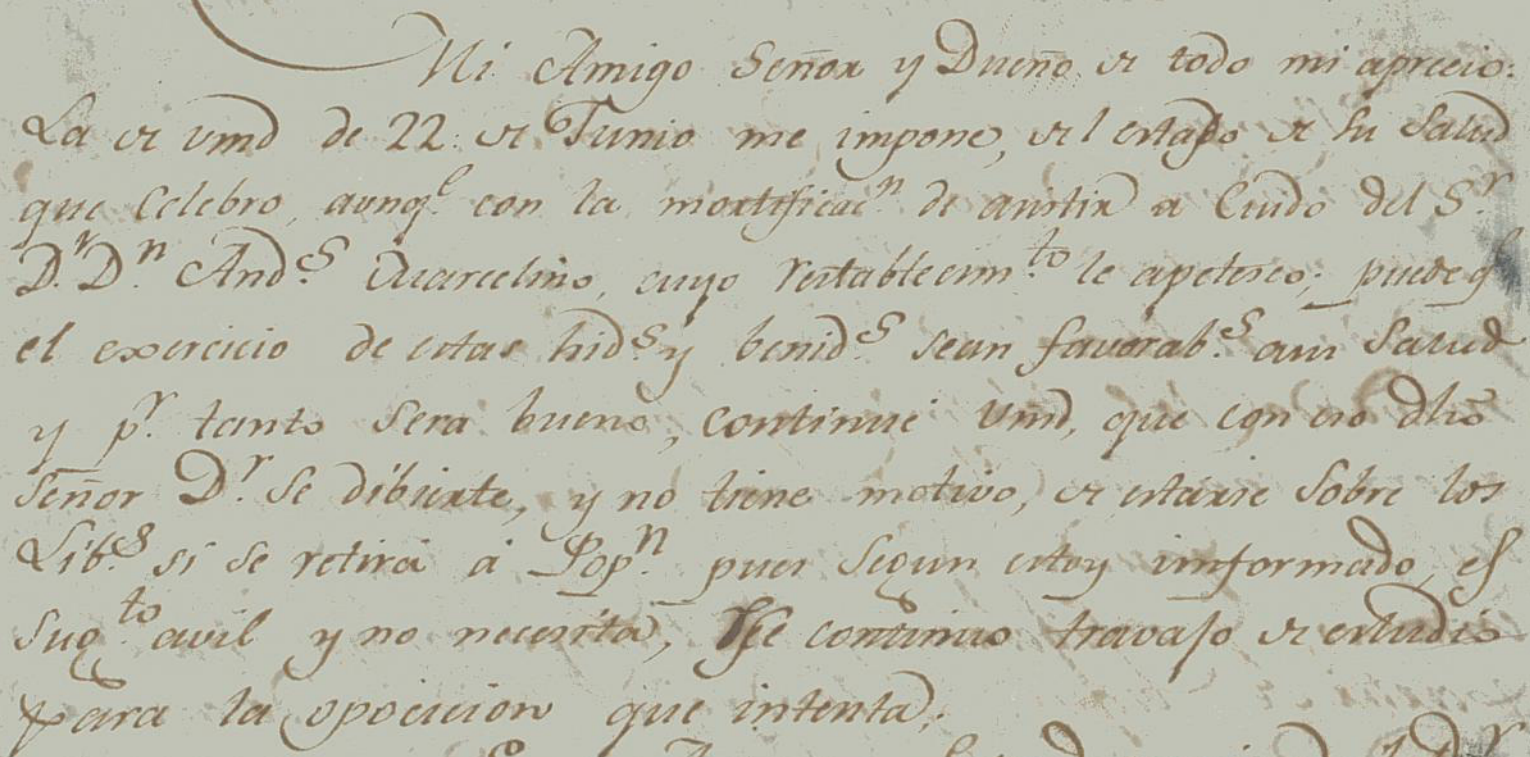 Mi Amigo Señor y Dueño de todo mi aprecio:
La de vmd de 22 de Junio me impone, del estado de su Salud
que Celebro, aunq.e con la mortificac.n de asistir a Cuido del S.r
D.r D.n And.s Marcelino, cuyo restablecim.to le apetesco; puede q.e
el exercicio de estas hid.s y benid.s sean favorab.s asu Salud
y p.r tanto sera bueno, continue Vmd, que con eso dho
Señor D.r se dibierte, y no tiene motivo, de estarse sobre los
Lib.s si se retira á Pop.n pues segun estoy imformado, es
Sug.to avil y no necesita, de continuo travajo de estudio
para la opocicion que intenta.